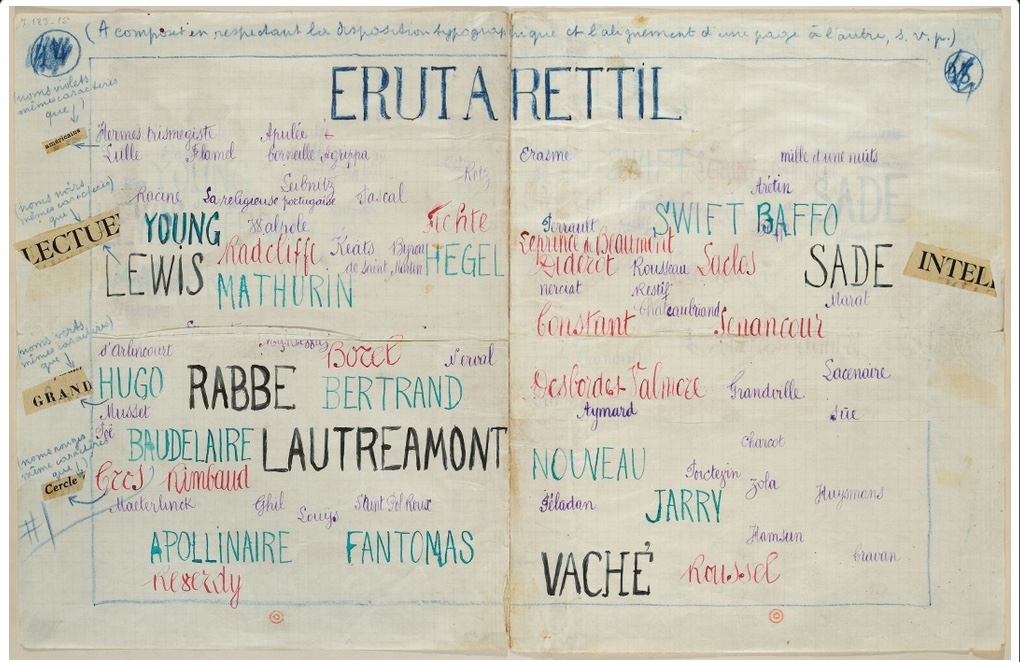 7.183-15
(A composer en respectant la disposition typographique et l'alignement d'une page à l'autre, s. v. p.)
ERUTARETTIL
(noms violets
même caractères
que)
américains
Hermes Trismegiste Apulée
Lulle Flamel Corneille Agrippa
Retz
Erasme mille et une nuits
Arétin
(noms noirs
même caractères
que)
LECTUE
Leibnitz
Racine La religieuse portugaise Pascal
YOUNG Walpole Fichte
LEWIS Radcliffe Keats Byron HEGEL
de Saint Martin
MATHURIN
Perrault SWIFT BAFFO
Leprince de Beaumont
Diderot Rousseau Laclos SADE INTEL
nerciat Restif Marat
Chateaubriand
Constant Senancour
(noms verts
même caractère)
que
GRAND
d'Arlincourt Borel Nerval
HUGO RABBE BERTRAND
Musset
Poë
BAUDELAIRE LAUTREAMONT
(noms rouges
même caractère
que)
Cercle
Cros Rimbaud
Maeterlinck Ghil Saint Pol Roux
Louÿs
APOLLINAIRE FANTOMAS
Reverdy
Lacenaire
Desbordes-Valmore Grandville
Aymard Süe
Charcot
NOUVEAU
Zola
Péladan JARRY Huysmans
Hamsun
Cravan
VACHÉ Roussel